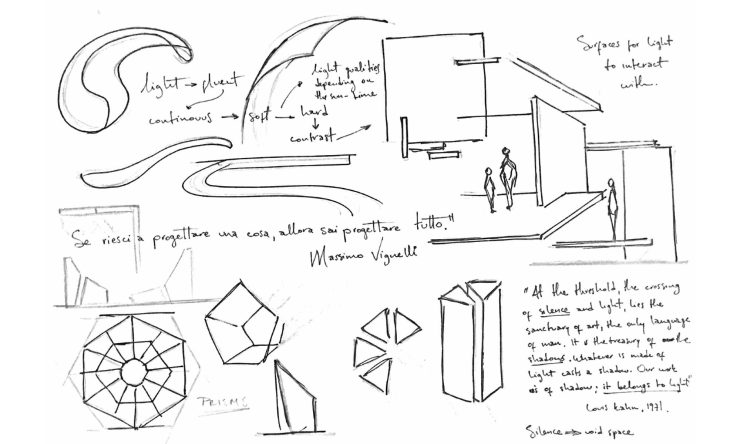 light → fluent
continuous → soft → hard
contrast
light qualities
depending on
the sun-time
Surfaces for light
to interact
with.
Se riesci a progettare una cosa, allora sai progettare tutto."
Massimo Vignelli
PRISMS
"At the threshold, the crossing
of silence and light, lies the
sanctuary of art, the only language
of man. It is the treasury of the
shadows. Whatever is made of
light casts a shadow. Our work
is of shadow; it belongs to light"
Louis Kahn, 1971.
Silence → void space